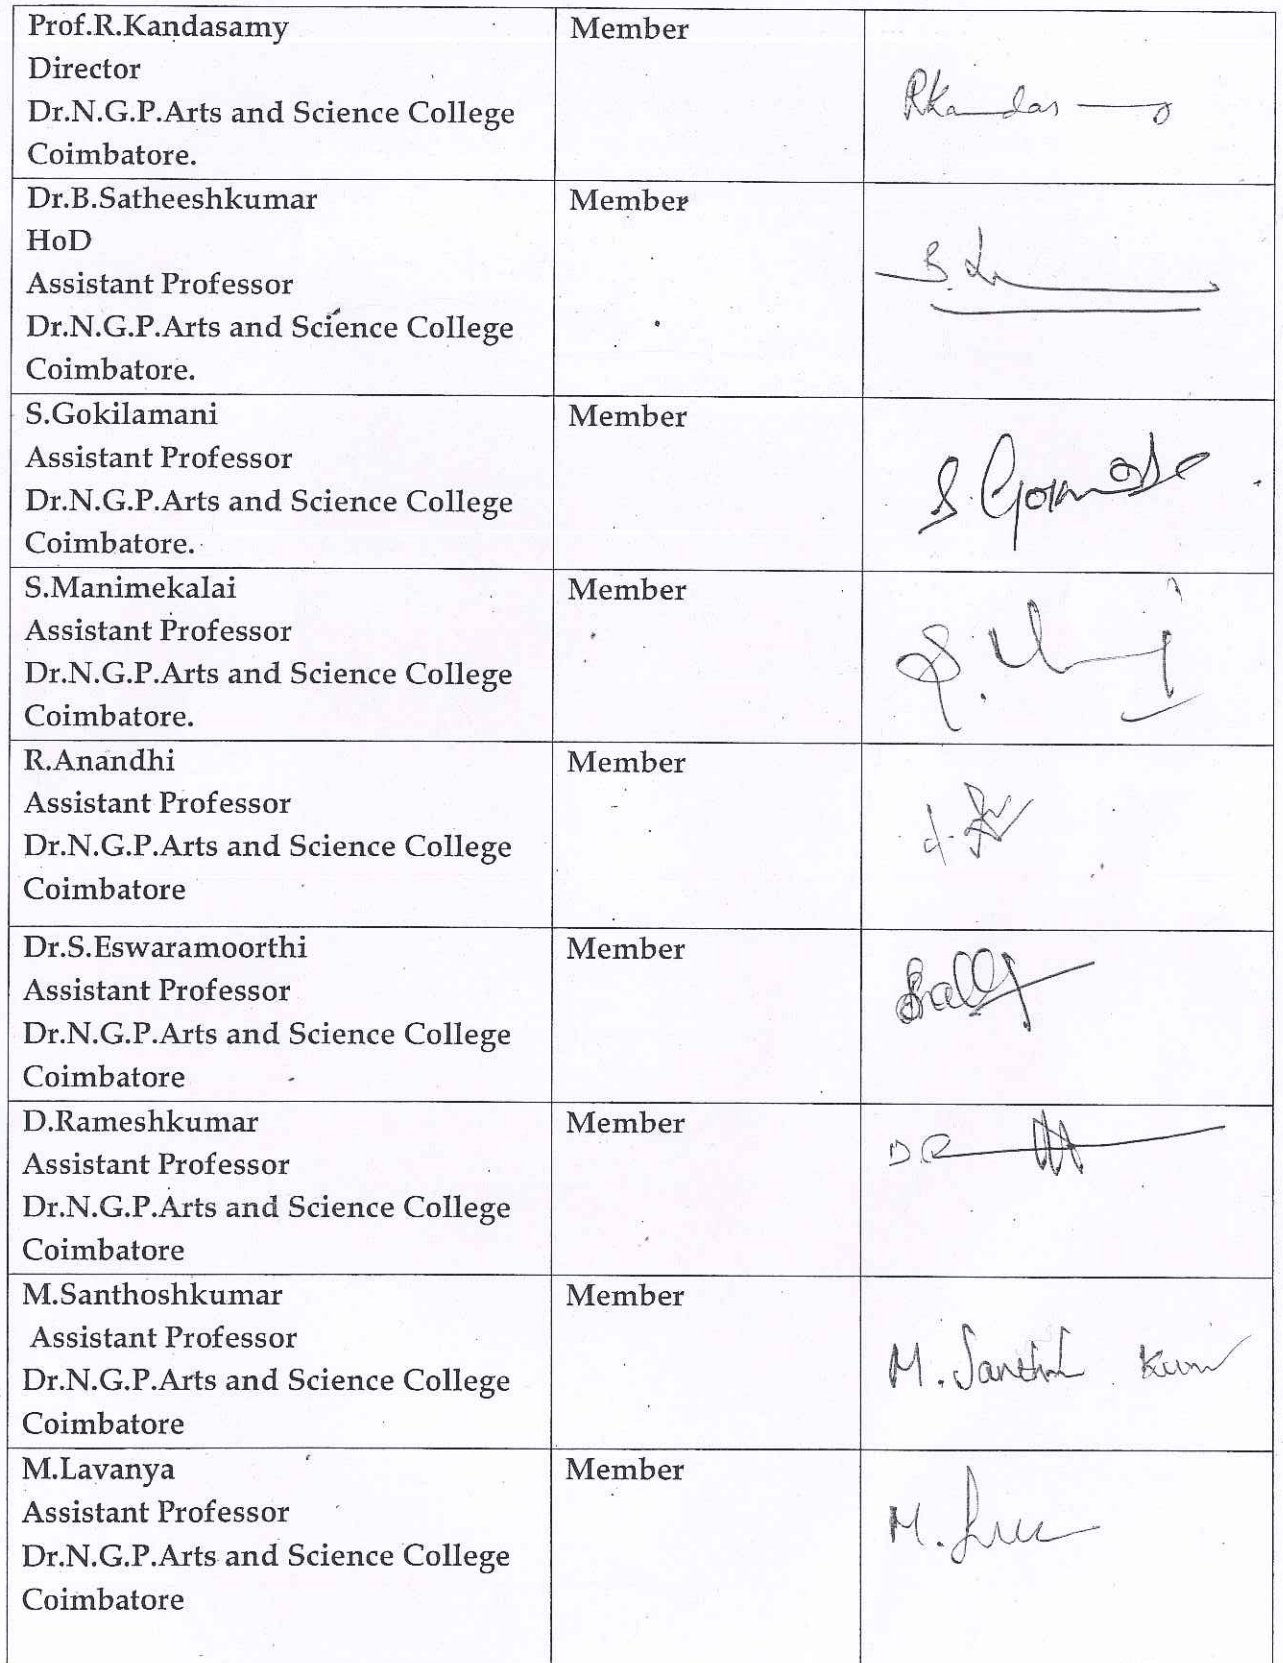 Prof.R.Kandasamy
Member
Director
Dr.N.G.P.Arts and Science College
Coimbatore.
RKandas
Dr.B.Satheeshkumar
Member
HoD
Assistant Professor
Dr.N.G.P.Arts and Science College
Coimbatore.
S.Gokilamani
Member
Assistant Professor
Dr.N.G.P.Arts and Science College
Coimbatore.
S.Manimekalai
Member
Assistant Professor
Dr.N.G.P.Arts and Science College
Coimbatore.
R.Anandhi
Member
Assistant Professor
Dr.N.G.P.Arts and Science College
Coimbatore
Dr.S.Eswaramoorthi
Member
Assistant Professor
Dr.N.G.P.Arts and Science College
Coimbatore
D.Rameshkumar
Member
Assistant Professor
Dr.N.G.P.Arts and Science College
Coimbatore
D R
M.Santhoshkumar
Member
Assistant Professor
Dr.N.G.P.Arts and Science College
Coimbatore
M.
M.Lavanya
Member
Assistant Professor
Dr.N.G.P.Arts and Science College
Coimbatore
M.